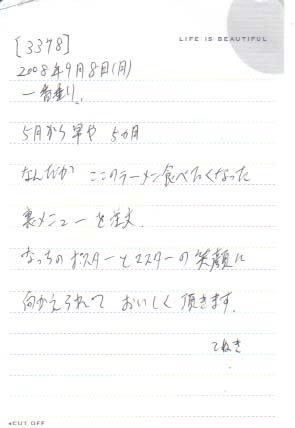 LIFE IS BEAUTIFUL
[3378]
2008年9月8日(月)
一番乗り。
5月から早や 5ヵ月
なんだか ここのラーメン食べたくなった
裏メニューを注文.
なっちのポスターとマスターの笑顔に
向かえられて おいしく 頂きます.
てぬき
CUT OFF